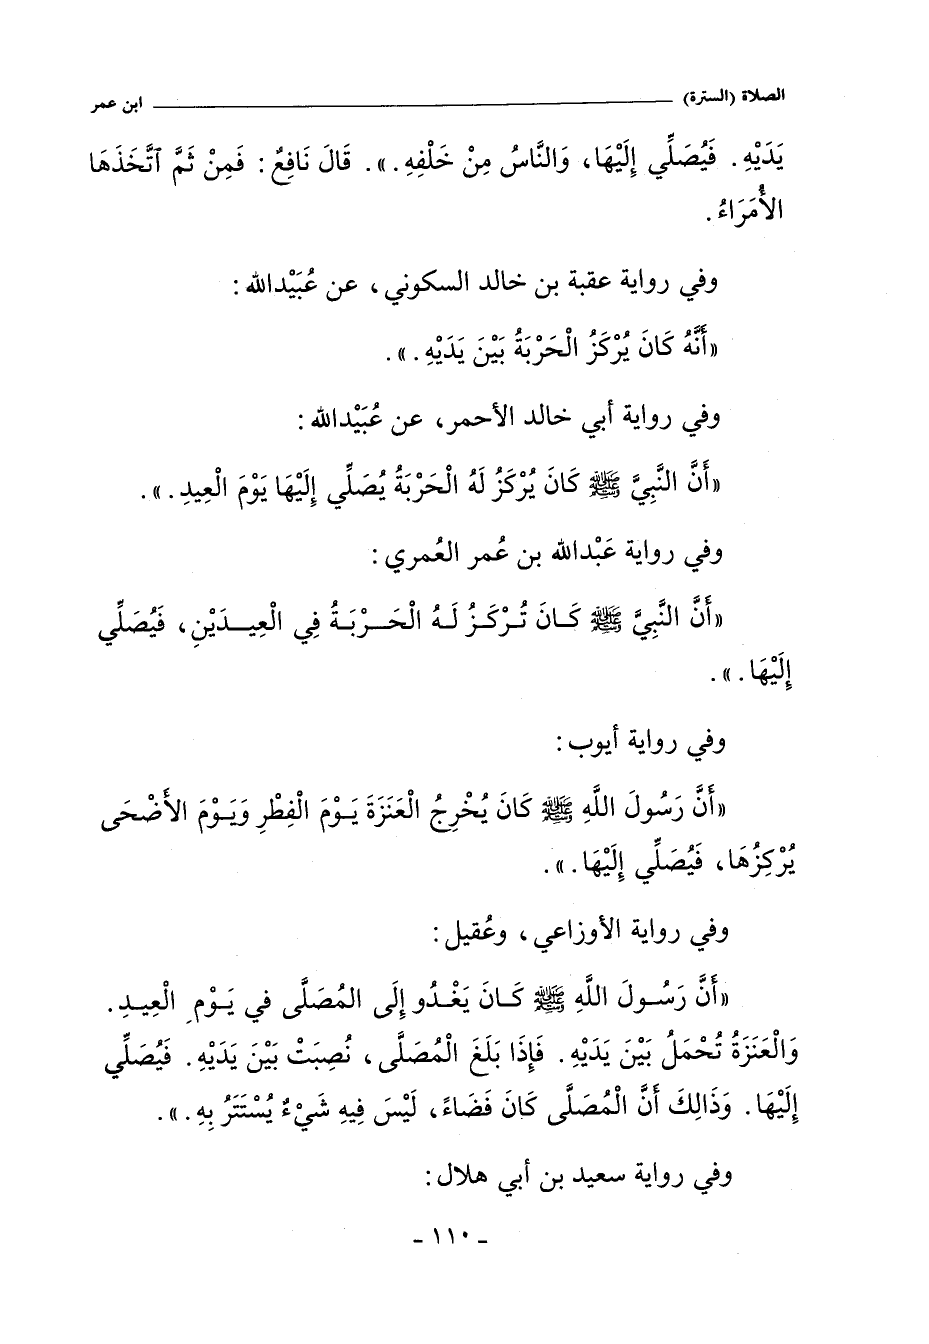 الصلاة (السترة) ــــــــــــــــــــ ابن عمر
يَدَيْهِ. فَيُصَلِّي إِلَيْهَا، وَالنَّاسُ مِنْ خَلْفِهِ.». قَالَ نَافِعٌ: فَمِنْ ثَمَّ ٱتَّخَذَهَا
الأُمَرَاءُ.
وفي رواية عقبة بن خالد السكوني، عن عُبَيْدالله:
«أَنَّهُ كَانَ يُرْكَزُ الْحَرْبَةُ بَيْنَ يَدَيْهِ.».
وفي رواية أبي خالد الأحمر، عن عُبَيْدالله:
«أَنَّ النَّبِيَّ ﷺ كَانَ يُرْكَزُ لَهُ الْحَرْبَةُ يُصَلِّي إِلَيْهَا يَوْمَ الْعِيدِ.».
وفي رواية عَبْدالله بن عُمر العُمري:
«أَنَّ النَّبِيَّ ﷺ كَانَ تُرْكَزُ لَهُ الْحَرْبَةُ فِي الْعِيدَيْنِ، فَيُصَلِّي
إِلَيْهَا.».
وفي رواية أيوب:
«أَنَّ رَسُولَ اللَّهِ ﷺ كَانَ يُخْرِجُ الْعَنَزَةَ يَوْمَ الْفِطْرِ وَيَوْمَ الأَضْحَى
يُرْكِزُهَا، فَيُصَلِّي إِلَيْهَا.».
وفي رواية الأوزاعي، وعُقيل:
«أَنَّ رَسُولَ اللَّهِ ﷺ كَانَ يَغْدُو إِلَى المُصَلَّى في يَوْمِ الْعِيدِ.
وَالْعَنَزَةُ تُحْمَلُ بَيْنَ يَدَيْهِ. فَإِذَا بَلَغَ الْمُصَلَّى، نُصِبَتْ بَيْنَ يَدَيْهِ. فَيُصَلِّي
إِلَيْهَا. وَذَالِكَ أَنَّ الْمُصَلَّى كَانَ فَضَاءً، لَيْسَ فِيهِ شَيْءٌ يُسْتَتَرُ بِهِ.».
وفي رواية سعيد بن أبي هلال:
- ١١٠ -